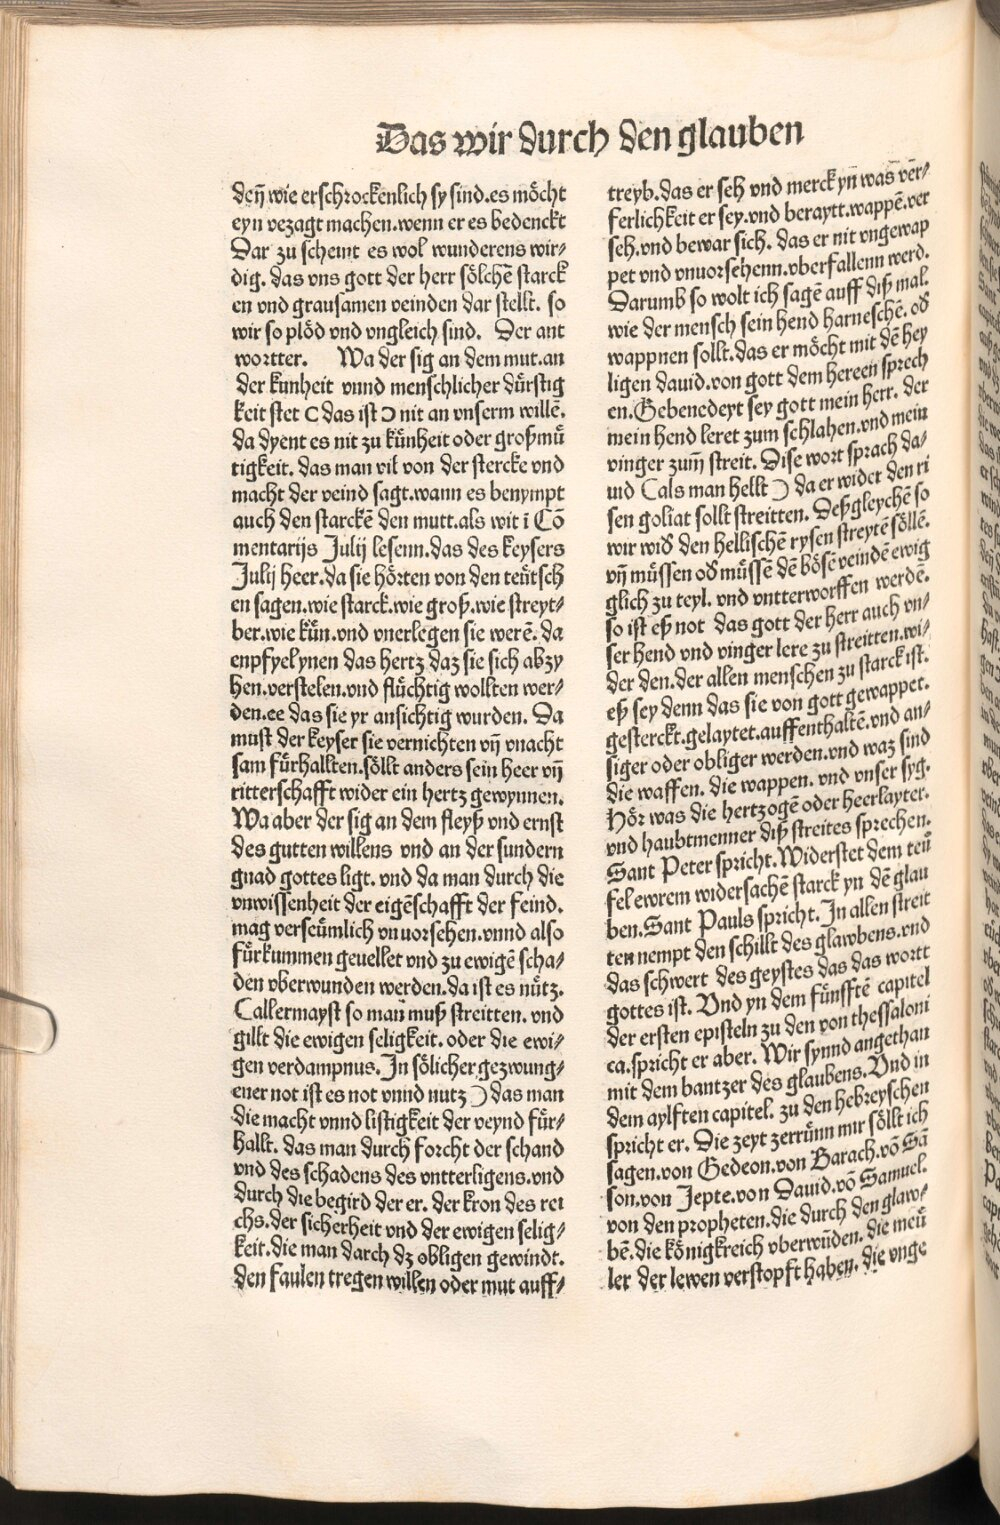 Das wir durch den glauben
deñ wie erschrockenlich sy sind.es möcht
eyn vezagt machen.wenn er es bedenckt
Dar zu scheint es wol wunderens wir⸗
dig. das vns gott der herr sölchē starck
en vnd grausamen veinden dar stellt. so
wir so plöd vnd vngleich sind. Der ant
wortter. Wa der sig an dem mut.an
der kunheit vnnd menschlicher dürstig
keit stet (das ist) nit an vnserm willē.
da dyent es nit zu künheit oder großmü
tigkeit. das man vil von der stercke vnd
macht der veind sagt.wann es benympt
auch den starckē den mutt.als wit ī Cō
mentarijs Julij lesenn.das des keysers
Julij heer.da sie hörten von den teütsch
en sagen.wie starck.wie groß.wie streyt⸗
ber.wie kün.vnd vnerlegen sie werē. da
enpfyel ynen das hertz daz sie sich abzy
hen.verstelen.vnd flüchtig wollten wer⸗
den.ee das sie yr ansichtig wurden. Da
must der keyser sie vernichten vñ vnacht
sam fürhallten.söllt anders sein heer vñ
ritterschafft wider ein hertz gewynnen.
Wa aber der sig an dem fleyß vnd ernst
des gutten willens vnd an der sundern
gnad gottes ligt. vnd da man durch die
vnwissenheit der eigēschafft der feind.
mag verseümlich vnuorsehen.vnnd also
fürkummen geuellet vnd zu ewigē scha⸗
den vberwunden werden.da ist es nütz.
(allermayst so man muß streitten. vnd
gillt die ewigen seligkeit. oder die ewi⸗
gen verdampnus. In sölicher gezwung⸗
ener not ist es not vnnd nutz) das man
die macht vnnd listigkeit der veynd für⸗
hallt. das man durch forcht der schand
vnd des schadens des vntterligens.vnd
durch die begird der er. der kron des rei
chs.der sicherheit vnd der ewigen selig⸗
keit.die man darch dz obligen gewindt.
den faulen tregen willen oder mut auff⸗
treyb.das er seh vnd merck yñ was ver⸗
ferlichkeit er sey.vnd beraytt.wappē.ver
seh.vnd bewar sich. das er nit vngewap
pet vnd vnuorsehenn.vberfallenn werd.
Darumb so wolt ich sagē auff diß mal.
wie der mensch sein hend harneschē. od
wappnen sollt.das er möcht mit dē hey
ligen dauid.von gott dem hereen sprech
en. Gebenedeyt sey gott mein herr. der
mein hend leret zum schlahen.vnd mein
vinger zum̄ streit. Dise wort sprach da⸗
uid (als man hellt) da er wider den ri
sen goliat sollt streitten. Deßgleychē so
wir wid den hellischē rysen streytē söllē.
vñ müssen od müssē dē bösē veindē ewig
glich zu teyl. vnd vntterworffen werdē.
so ist eß not das gott der herr auch vn⸗
ser hend vnd vinger lere zu streitten.wi⸗
der den.der allen menschen zu starck ist.
eß sey denn das sie von gott gewappet.
gesterckt.gelaytet.auffenthaltē.vnd an⸗
siger oder obliger werden.vnd waz sind
die waffen. die wappen. vnd vnser syg.
Hör was die hertzogē oder heerlayter.
vnd haubtmenner diß streites sprechen.
Sant Peter spricht. Widerstet dem teü
fel eworem widersachē starck yn dē glau
ben. Sant Pauls spricht. In allen streit
ten nempt den schillt des glawbens.vnd
das schwert des geystes das das wortt
gottes ist. Vnd yn dem fünfftē capitel
der ersten episteln zu den von thessaloni
ca.spricht er aber. Wir synnd angethan
mit dem bantzer des glaubens. Vnd in
dem aylften capitel. zu den hebreyschen
spricht er. Die zeyt zerrünn mir söllt ich
sagen.von Gedeon.von Barach.vō Sā
son.von Jepte.von Dauid.vō Samuel.
von den propheten.die durch den glaw⸗
bē.die königkreich vberwūden. die meü
ler der lewen verstopft haben. die vnge